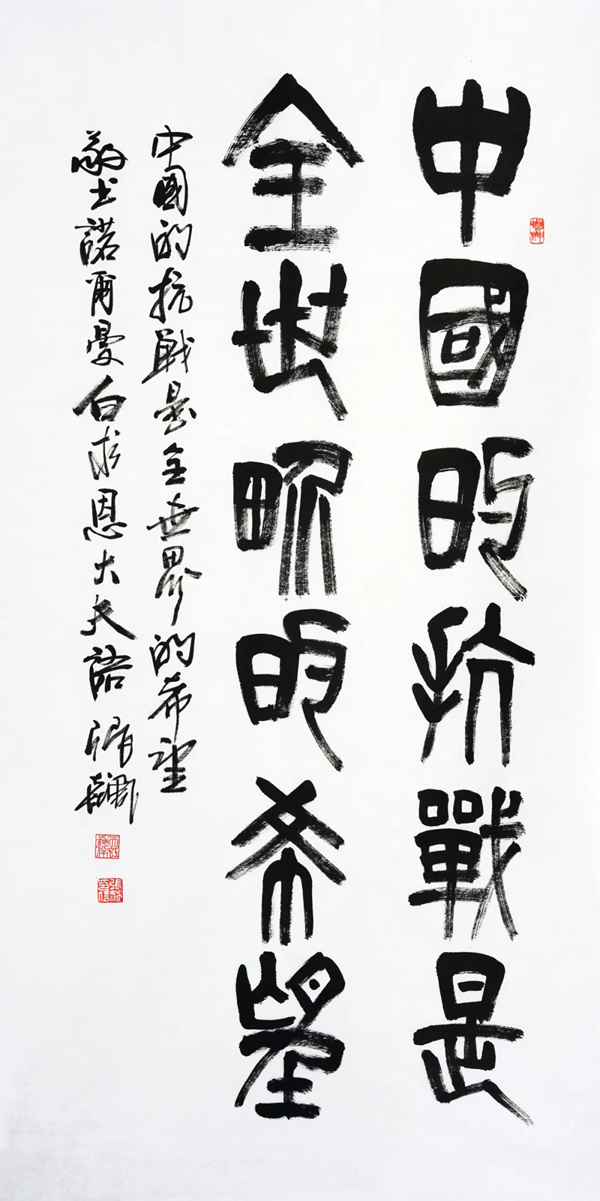 中國的抗戰是
全世界的希望
中國的抗戰是全世界的希望
敬書諾爾曼白求恩大夫語